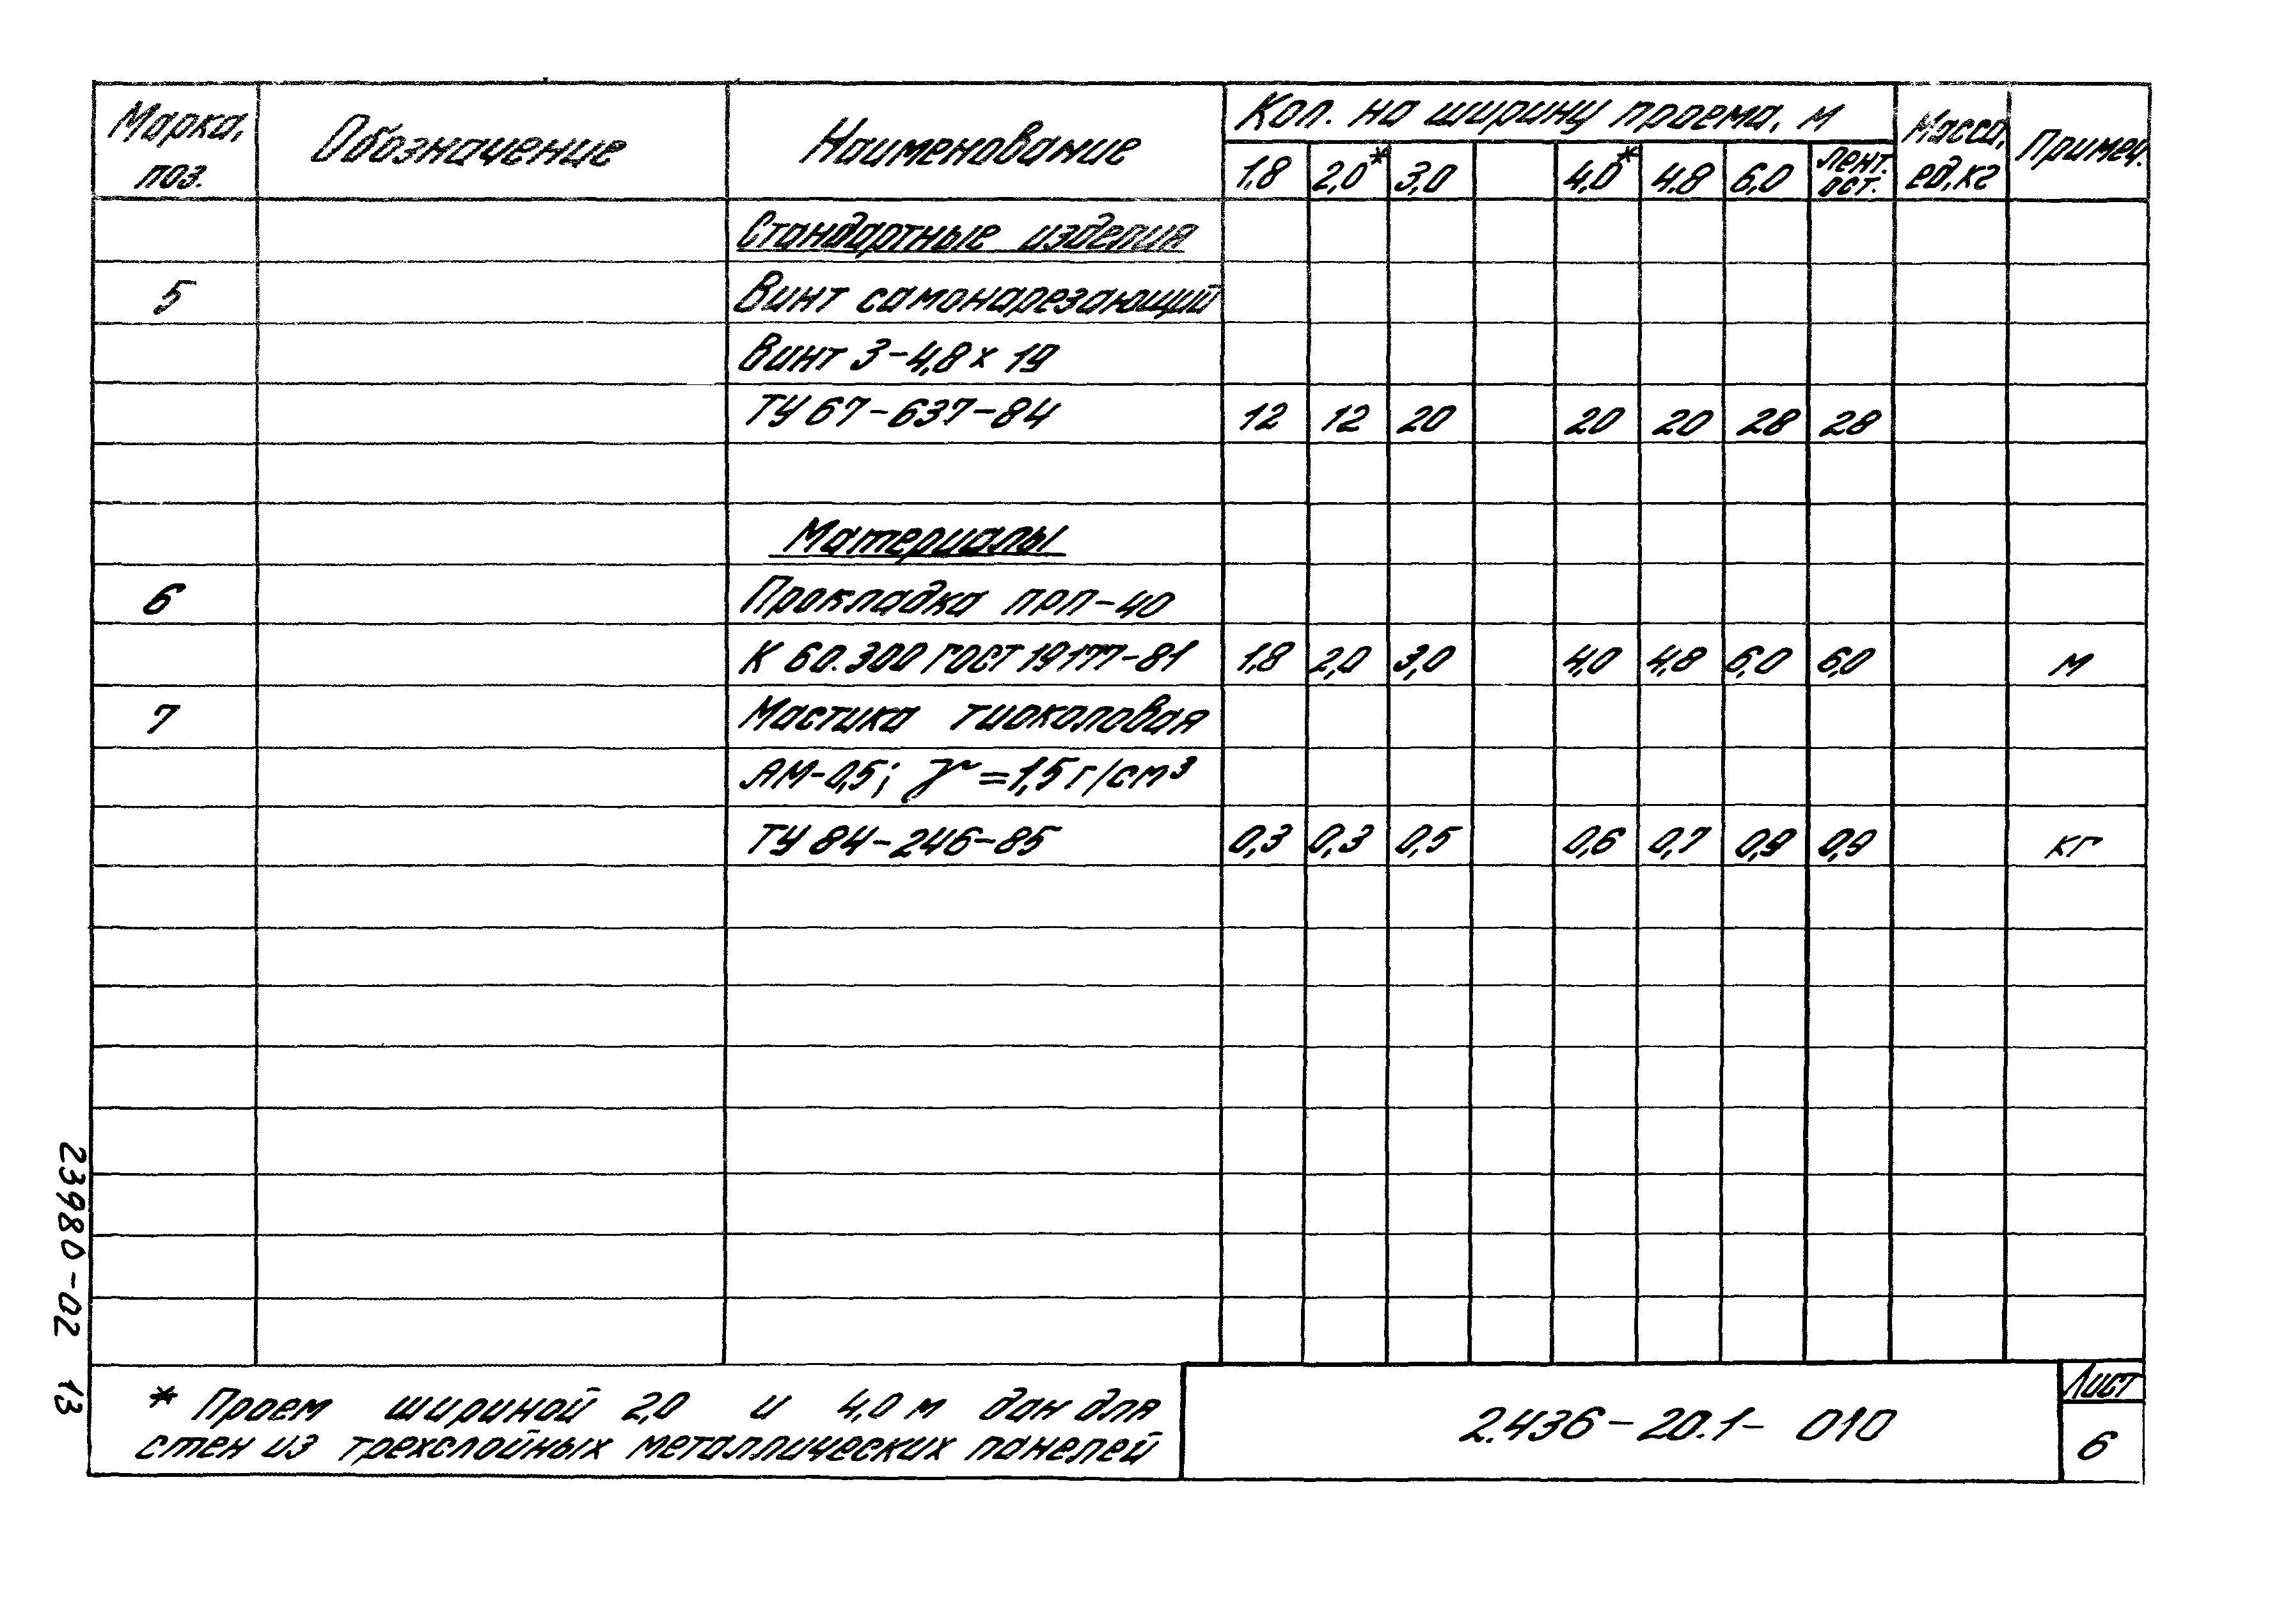 Марка, поз. Обозначение Наименование Кол. на ширину проема, м Масса, ед, кг Примеч.
1,8 2,0* 3,0 4,0* 4.8 6,0 лент. ост.
Стандартные изделия
5 Винт самонарезающий
Винт 3-4,8 х 19
ТУ 67-637-84 12 12 20 20 20 28 28
Материалы
6 Прокладка ПРП-40
К 60.300 ГОСТ 19177-81 1,8 2,0 3,0 4,0 4,8 6,0 6,0 м
7 Мастика тиоколовая
АМ-0,5; γ = 1,5 г/см³
ТУ 84-246-85 0,3 0,3 0,5 0,6 0,7 0,9 0,9 кг
* Проем шириной 2,0 и 4,0 м дан для
стен из трехслойных металлических панелей
2.436-20.1- 010
Лист
6
23980-02 13